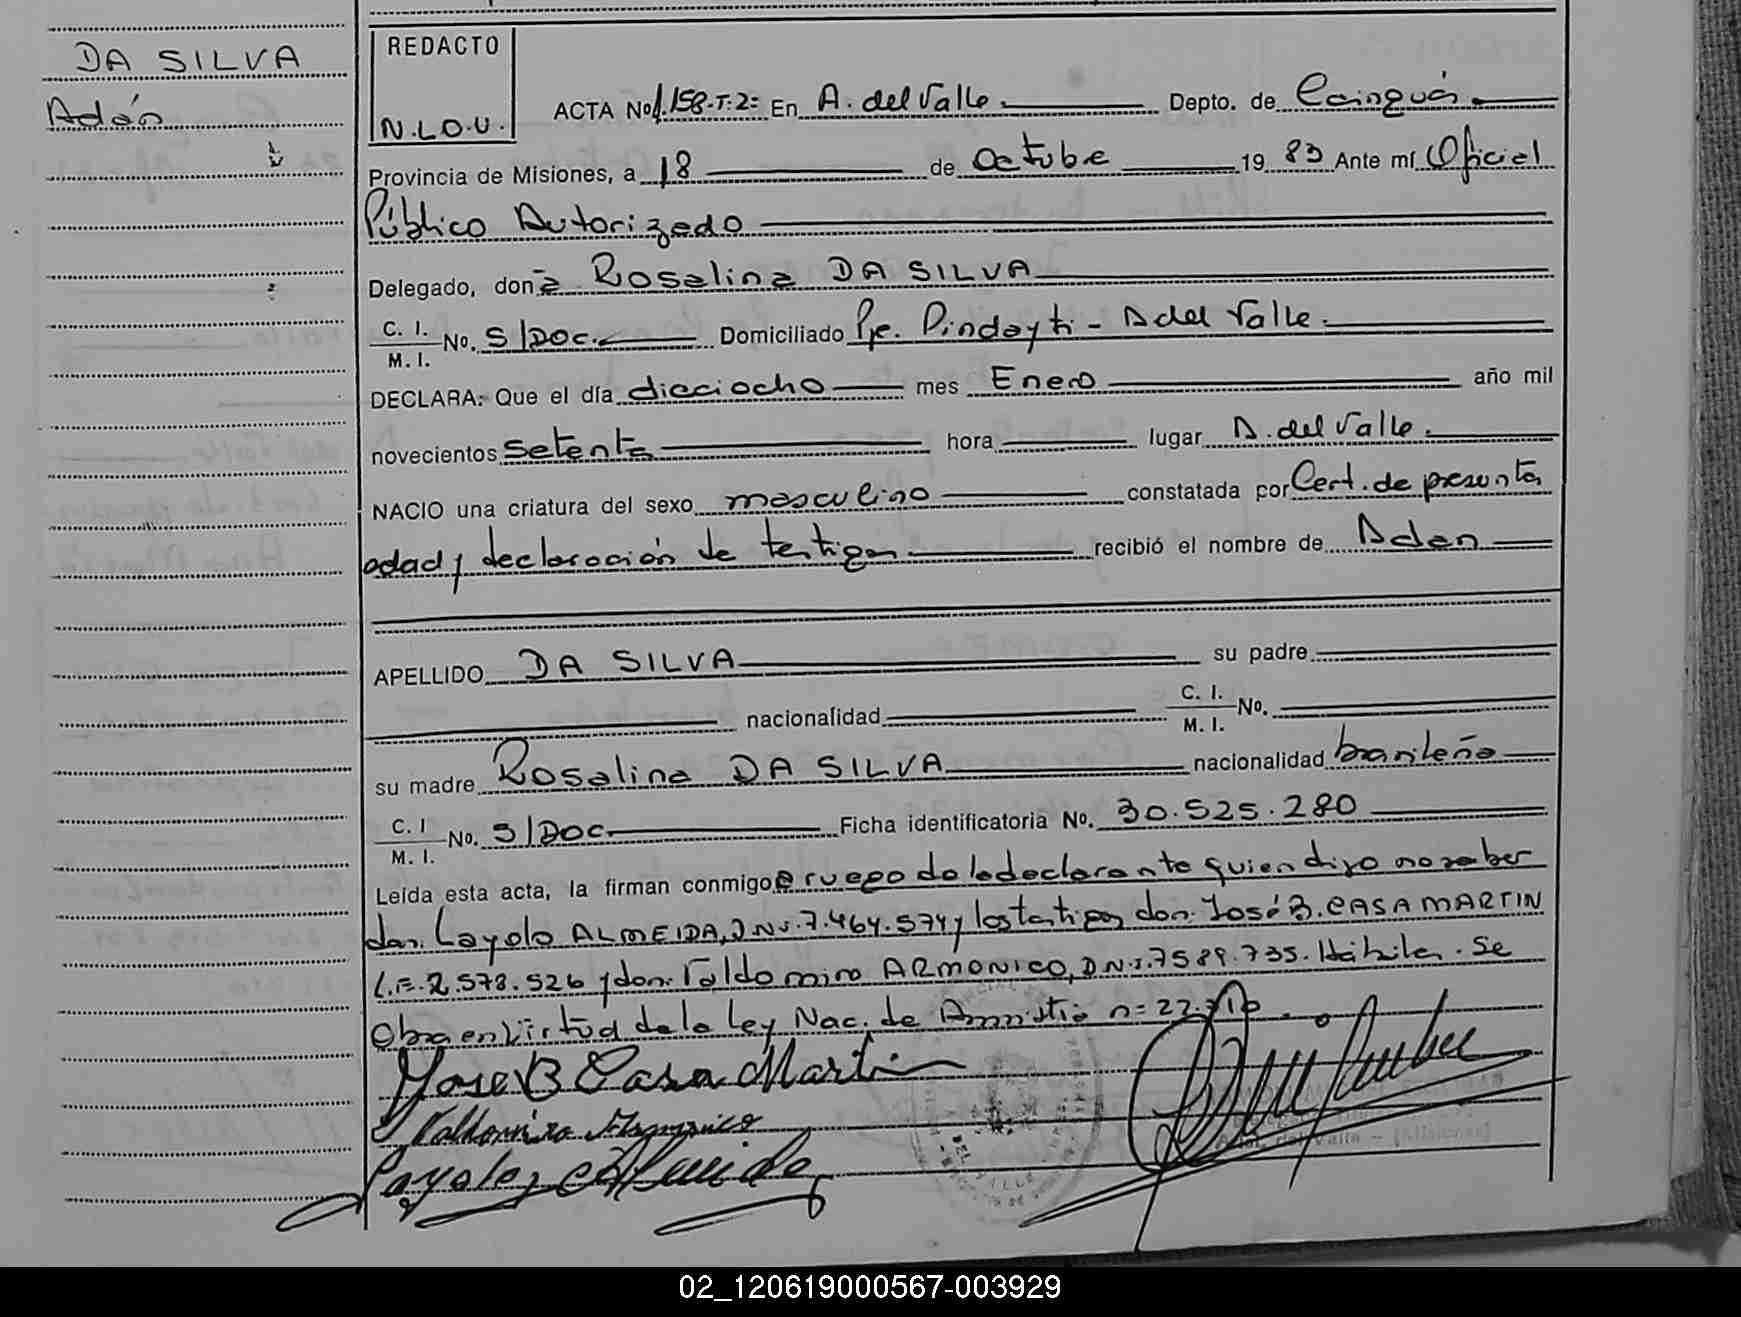 DA SILVA
Adán
REDACTO
N.L.O.U.
ACTA No 1.158-T:2= En A. del Valle Depto. de Cainguás
Provincia de Misiones, a 18 de Octubre 1983 Ante mí Oficial
Público Autorizado
Delegado, don a Rosalina DA SILVA
C. I.
M. I. No. S/DOC. Domiciliado Pje. Pindayti - A del Valle.
DECLARA: Que el día dieciocho mes Enero año mil
novecientos setenta hora lugar A. del Valle.
NACIO una criatura del sexo masculino constatada por Cert. de presunta
edad y declaración de testigos recibió el nombre de Adan
APELLIDO DA SILVA su padre
nacionalidad C. I.
M. I. No.
su madre Rosalina DA SILVA nacionalidad brasileña
C. I
M. I. No. S/DOC. Ficha identificatoria No. 30.525.280
Leída esta acta, la firman conmigo a ruego de la declarante quien dijo no saber
don. Layolo ALMEIDA, D.N.I. 7.464.574 y los testigos don. José B. CASAMARTIN
L.E. 2.578.526 y don. Valdomiro ARMONICO, D.N.I. 7589.735. Hábiles. Se
obra en Virtud de la Ley Nac. de Amnistia n= 22.
Jose B Casa Martin
Valdomiro
Layolo Almeida
02_120619000567-003929